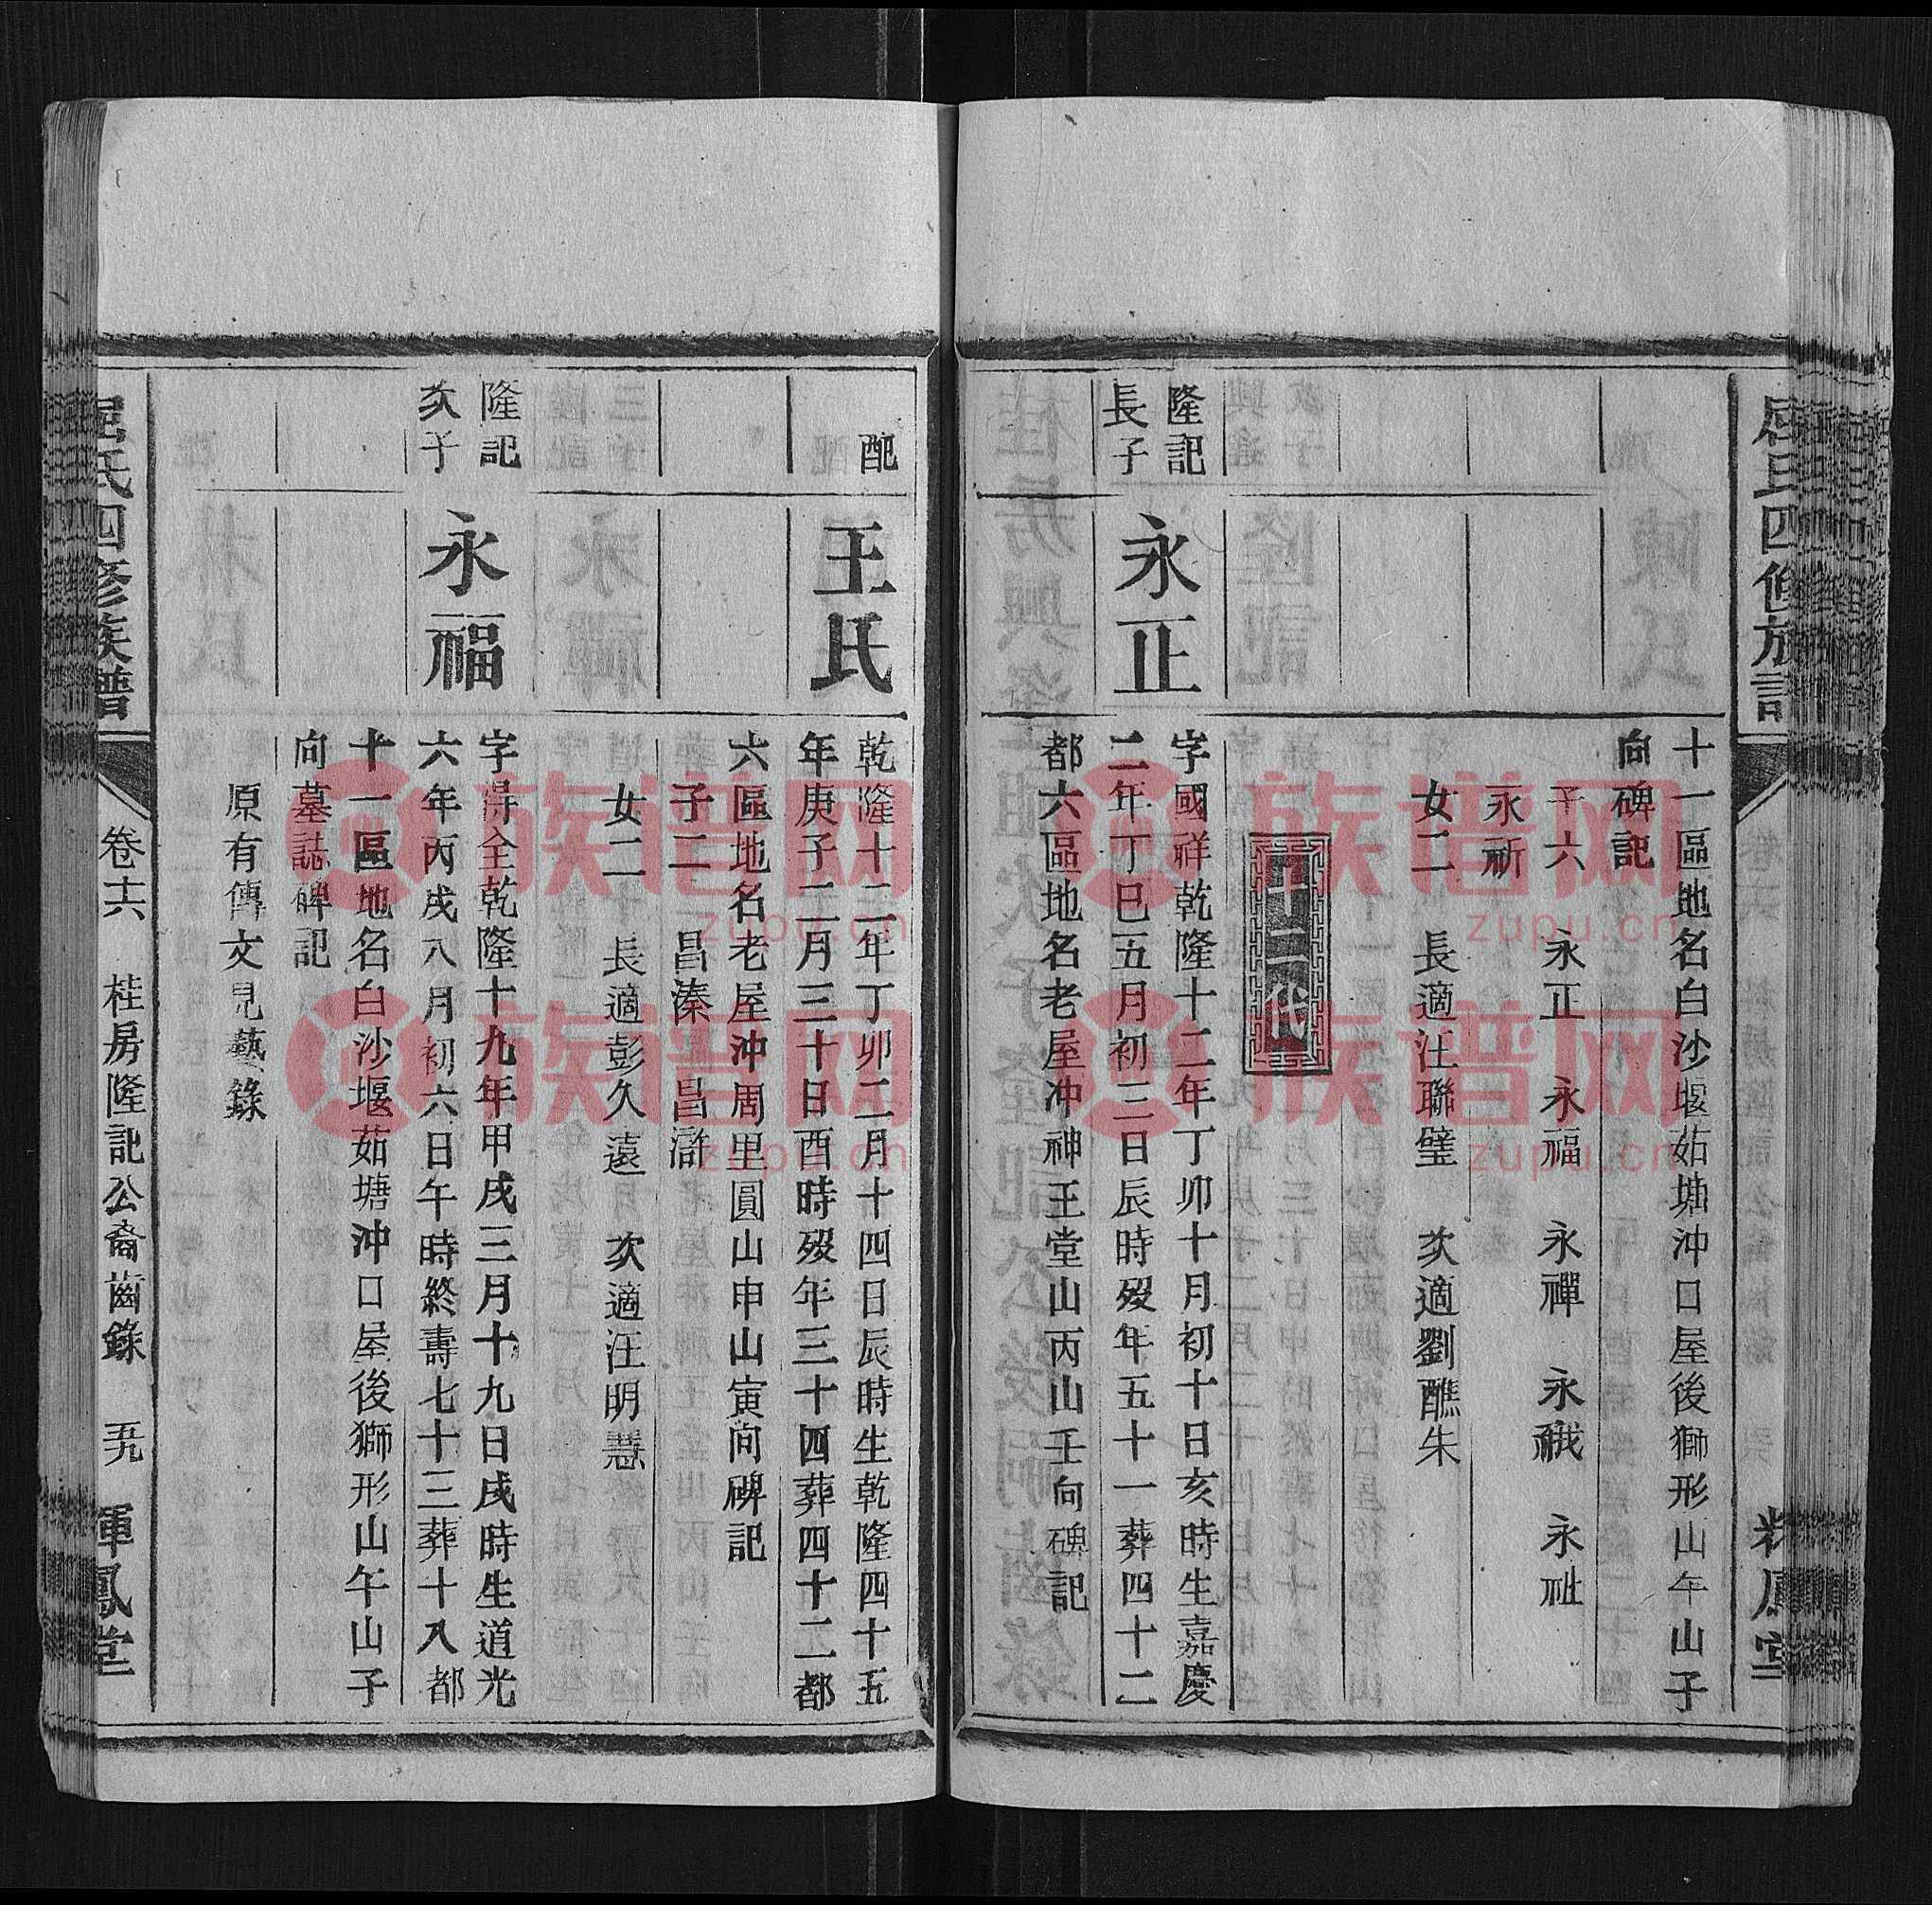 十一區地名白沙堰茹塘沖口屋後獅形山午山子
向碑記
子六 永正 永福 永禪 永禩 永祉
永祈
女二 長適汪聯璧 次適劉醮朱
十二代
隆記
長子
永正
字國祥乾隆十二年丁卯十月初十日亥時生嘉慶
二年丁巳五月初三日辰時歿年五十一葬四十二
都六區地名老屋沖神王堂山丙山壬向碑記
配
王氏
乾隆十二年丁卯二月十四日辰時生乾隆四十五
年庚子二月三十日酉時歿年三十四葬四十二都
六區地名老屋沖周里圓山申山寅向碑記
子二 昌溱 昌滸
女二 長適彭久遠 次適汪明慧
隆記
次子
永福
字得全乾隆十九年甲戌三月十九日戌時生道光
六年丙戌八月初六日午時終壽七十三葬十八都
十一區地名白沙堰茹塘沖口屋後獅形山午山子
向墓誌碑記
原有傳文見藝錄
屈氏四修族譜
卷十六 桂房隆記公裔齒錄 五九 輝鳳堂
族谱网
zupu.cn
族谱网
zupu.cn
族谱网
zupu.cn
族谱网
zupu.cn